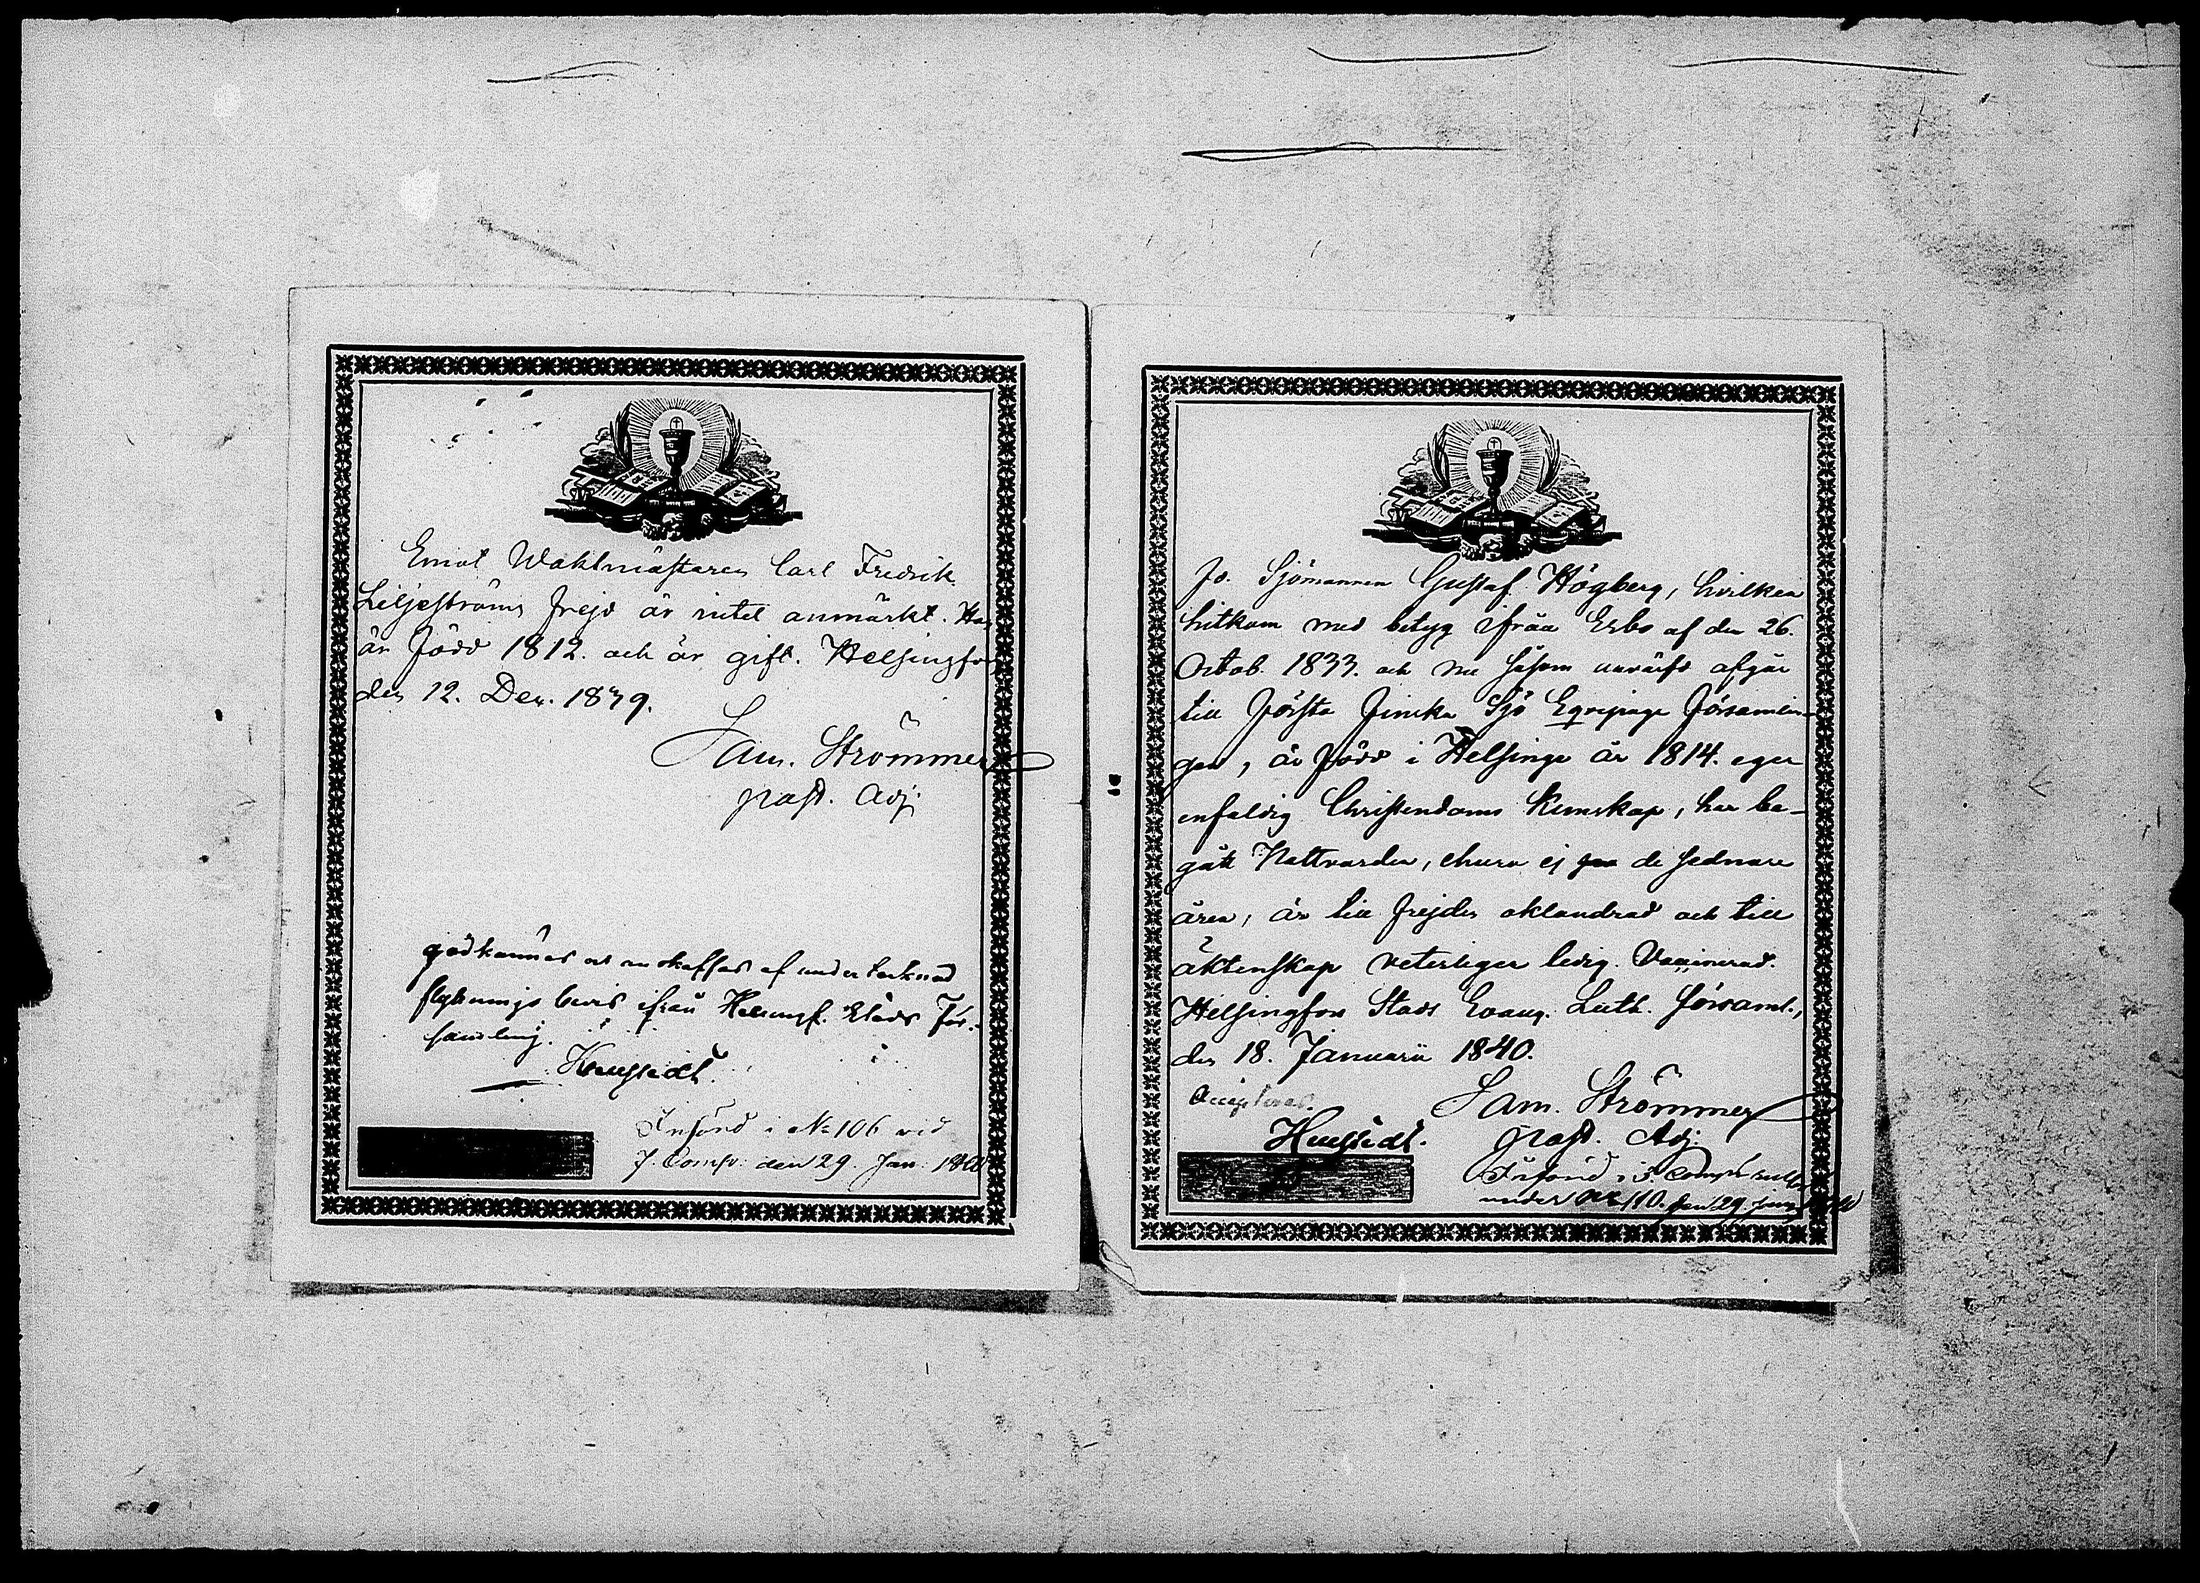 Emot Waktmästaren Carl Fredrik
Liljeströms frejd är intet anmärkt. Han
är född 1812. och är gift. Helsingfors
den 12. Dec. 1839.
Sam. Strömmer
past. Adj.
godkännes och anskaffas af undertecknad
flyttnings bevis ifrån Helsingf. Stads För-
samling.
Införd i No 106 vid
Comp: den 29. Jan. 1840
Fd. Sjömannen Gustaf Högberg, hvilken
hitkom med betyg ifrån Esbo af den 26.
Octob. 1833. och nu såsom anvärfd afgår
till Första Finska Sjö Equipage församlin-
gen, är född i Helsinge år 1814. eger
enfaldig Christendoms Kunskap, har be-
gått Nattvarden, ehuru ej de sednare
åren, är till frejden oklandrad och till
äktenskap veterligen ledig. Vaccinerad.
Helsingfors Stads Evang. Luth. församl.,
den 18. Januarii 1840.
Accepteras.
Sam. Strömmer
past. Adj.
Införd i 3. Comp:
under No 110. den 29. Jan. 1840